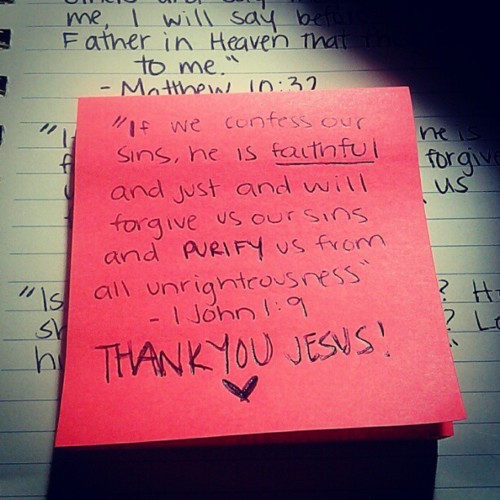 me, I will say before
Father in Heaven that
to me."
- Matthew 10:32
"If we confess our
sins, he is faithful
and just and will
forgive us our sins
and PURIFY us from
all unrighteousness"
- 1 John 1:9
THANK YOU JESUS!
he is
forgive
us
"Is